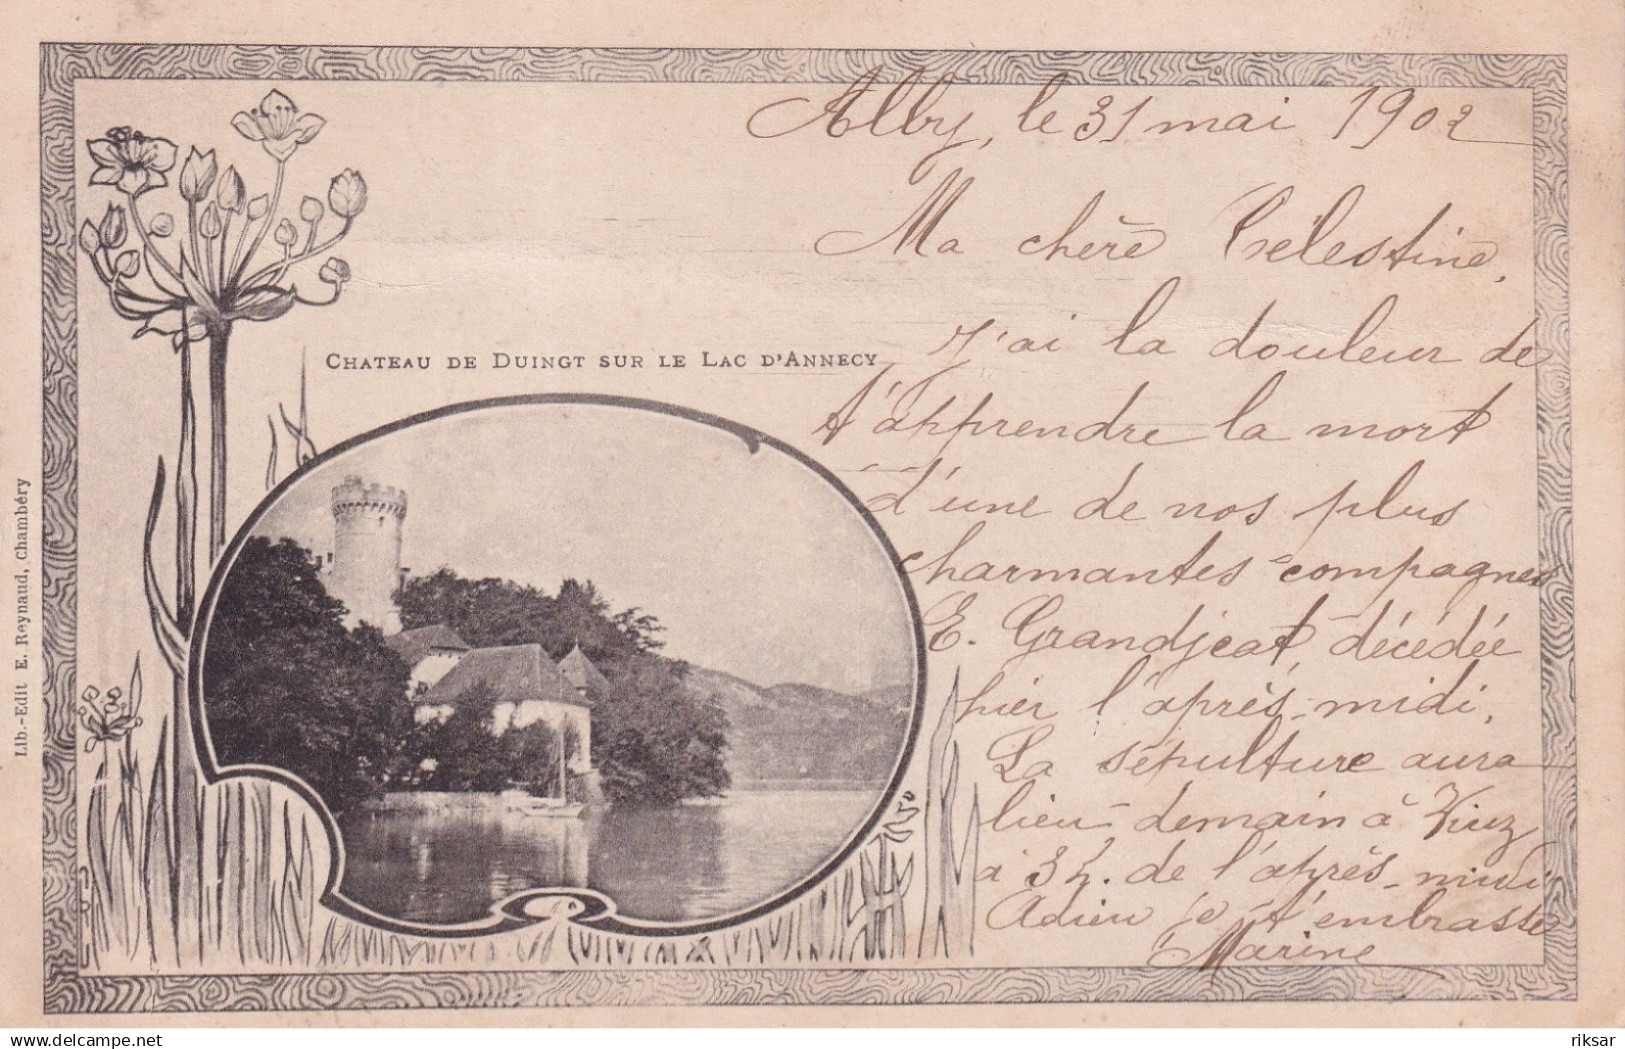 Alby, le 31 mai 1902
Ma chère Célestine,
J'ai la douleur de
t'apprendre la mort
d'une de nos plus
charmantes compagnes
E. Grandjeat, décédée
hier l'après-midi.
La sépulture aura
lieu demain à Viuz
à 3h. de l'après-midi
Adieu je t'embrasse
Marine
CHATEAU DE DUINGT SUR LE LAC D'ANNECY
Lib.-Edit E. Reynaud, Chambéry
www.delcampe.net
riksar